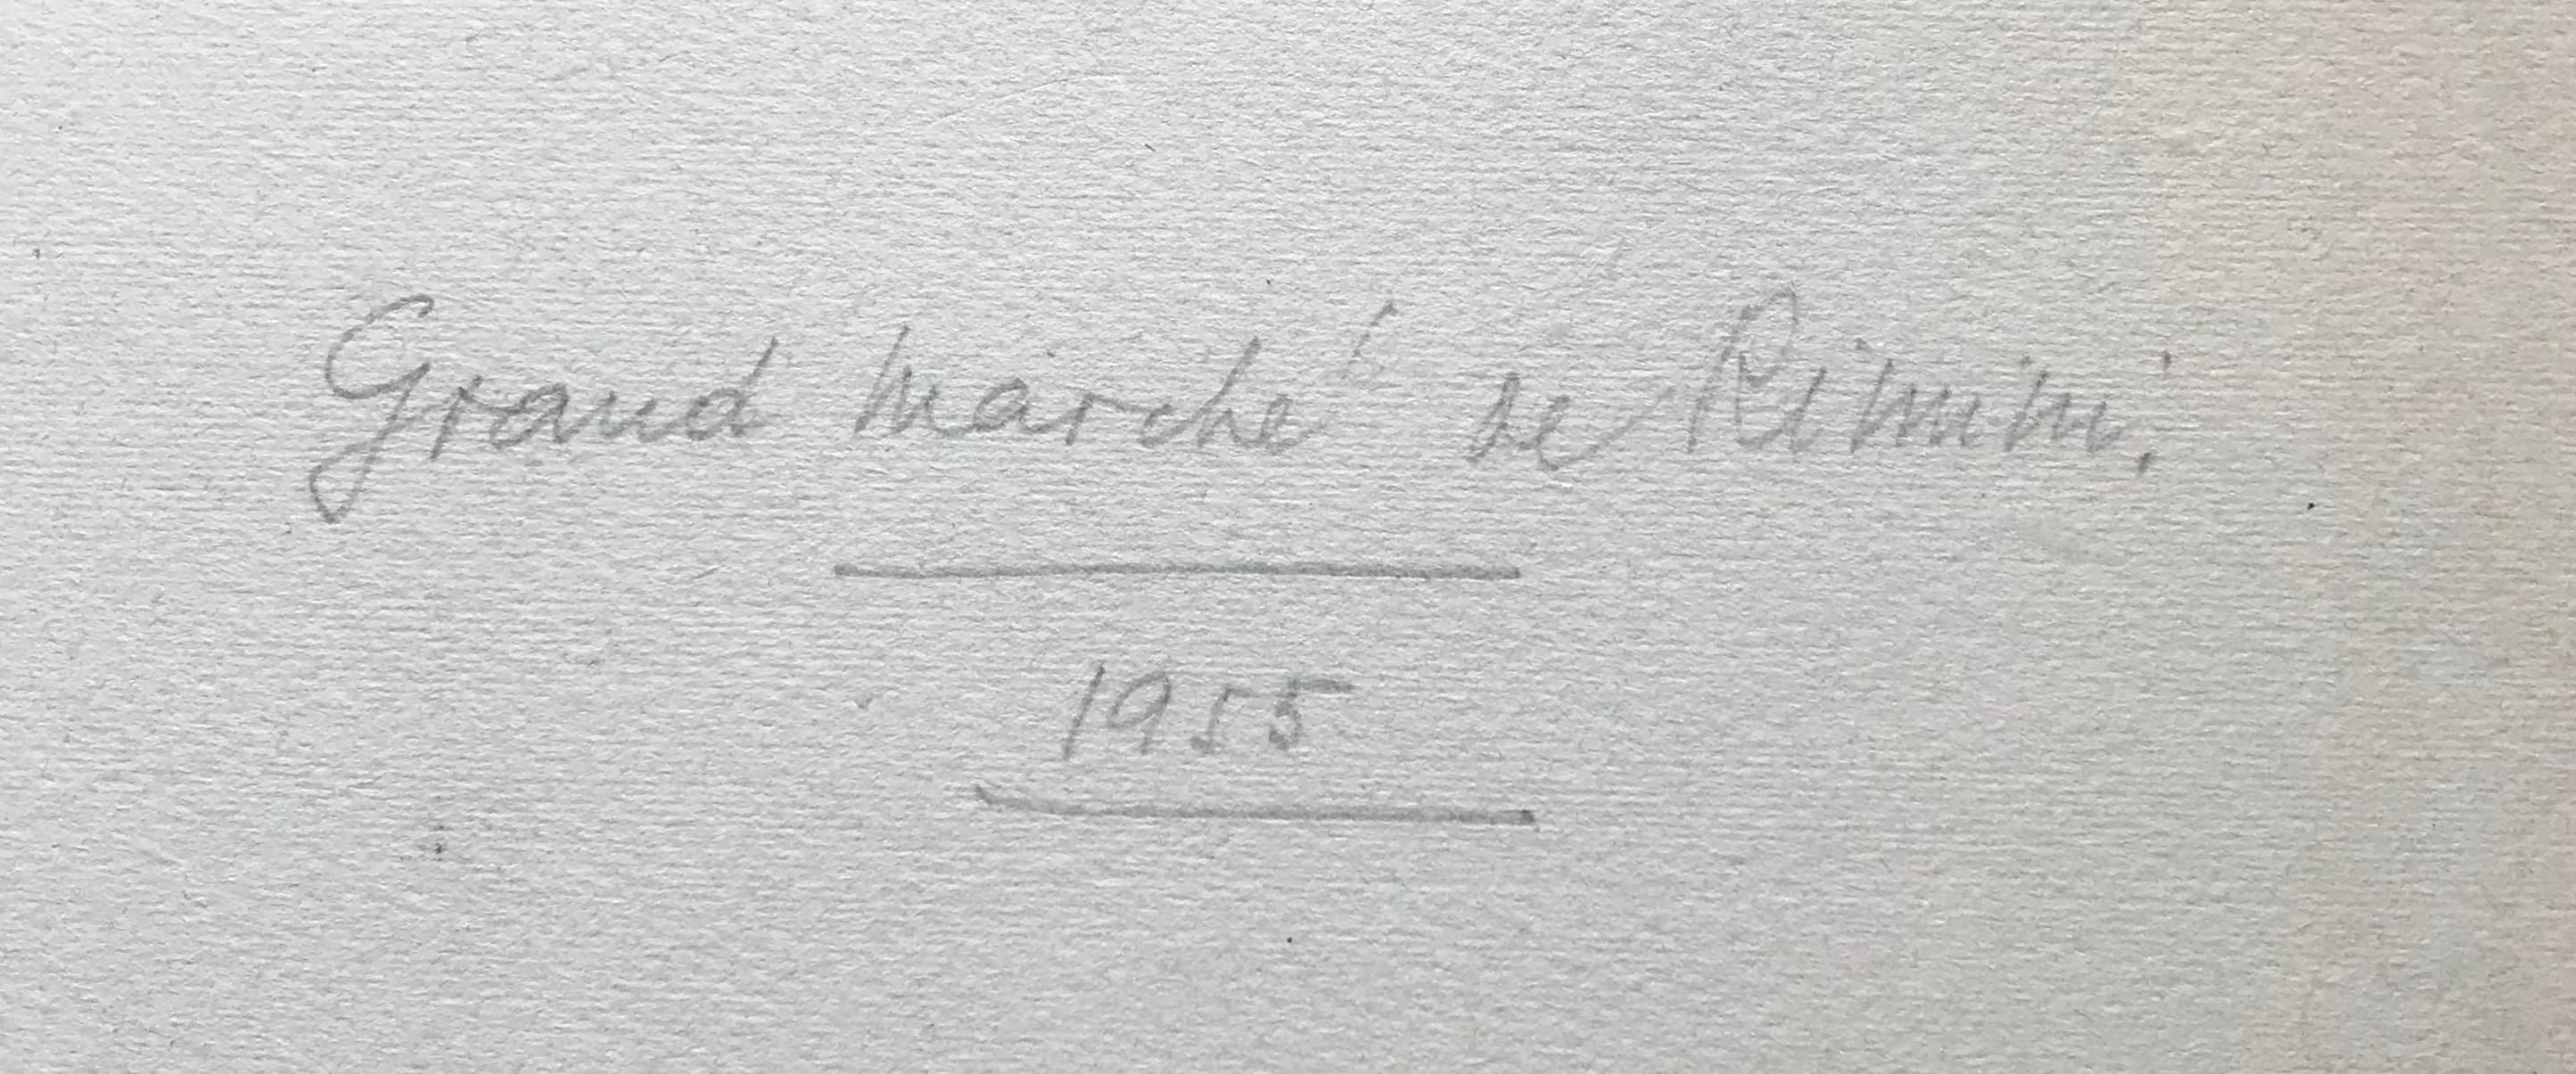 Grand marché de Rimini.
1955